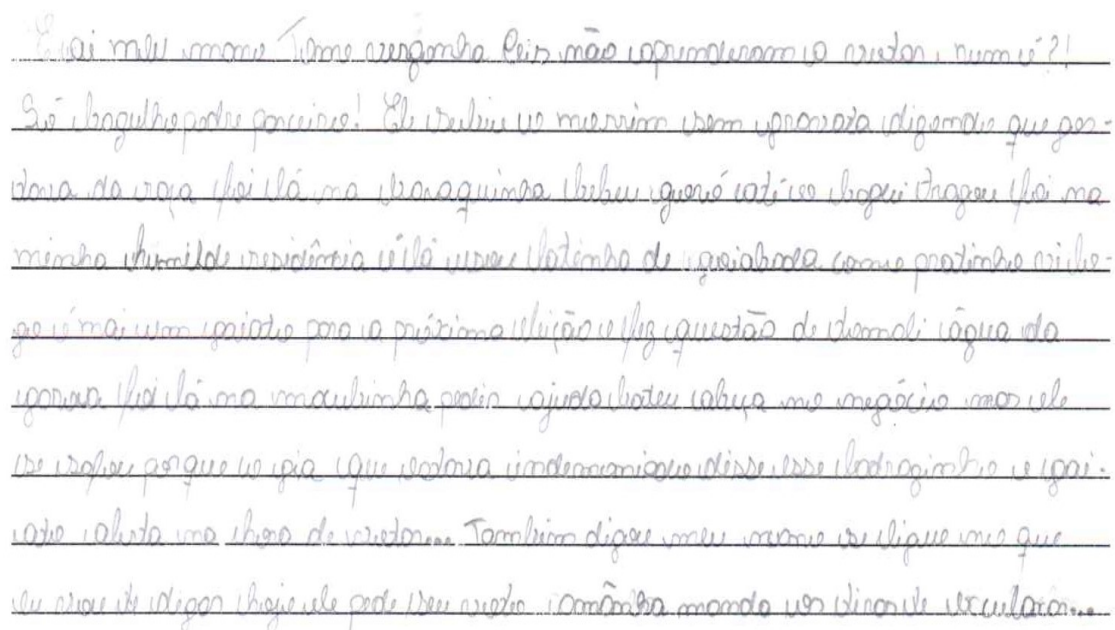 E aí meu mano Tome vergonha Ceis não aprenderam a votar, num é?!
Só bagulho podre parceiro! Ele subiu o morrim sem gravata dizendo que gos-
tava da raça foi lá na baraquinha bebeu queró até o bagui tragou foi na
minha humilde residência e lá usou latinha de goiabada como pratinho vi lo-
go é mai um gaiato pra a próxima eleição e fez questão de tomali água da
 foi lá na macubinha pediu ajuda bateu cabeça no negócio mas ele
se safou porque o gia que estava indemoniou disse esse ladrãzinho e gai-
ato alerta na hora de votar.... Também digou meu mano se ligue no que
eu vou te digar hoje ele pede seu voto amanhã manda os tiras te isculaxar...